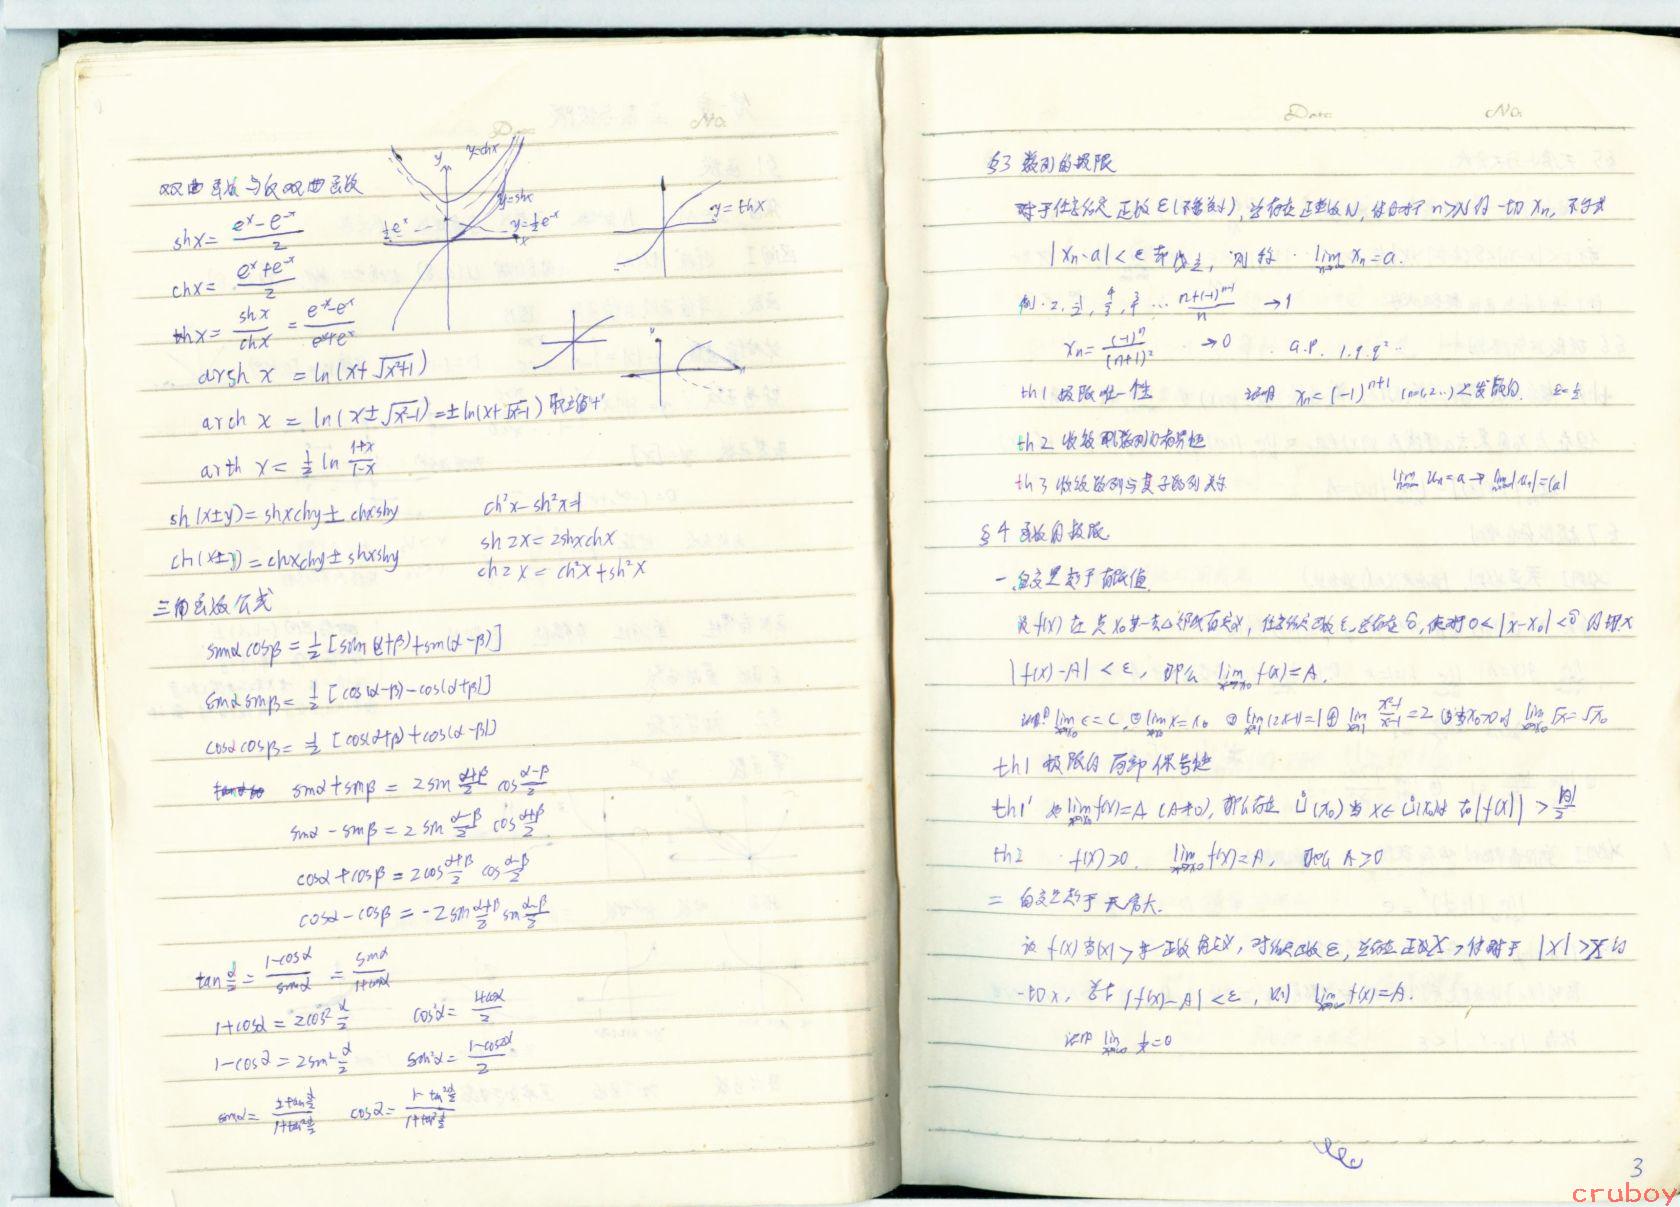 Date No.
双曲函数与反双曲函数
y=chx
y=shx
½e^x
y=½e^-x
y=thx
shx= (e^x-e^-x)/2
chx= (e^x+e^-x)/2
thx= shx/chx = (e^x-e^-x)/(e^x+e^-x)
arsh x = ln(x+√(x²+1))
arch x = ln(x±√(x²-1))=±ln(x+√(x²-1))
arth x = ½ ln (1+x)/(1-x)
sh(x±y)=shxchy±chxshy ch²x-sh²x=1
ch(x±y)=chxchy±shxshy sh2x=2shxchx
ch2x=ch²x+sh²x
三角函数公式
sinαcosβ=½[sin(α+β)+sin(α-β)]
sinαsinβ=½[cos(α-β)-cos(α+β)]
cosαcosβ=½[cos(α+β)+cos(α-β)]
sinα+sinβ=2sin (α+β)/2 cos (α-β)/2
sinα-sinβ=2sin (α-β)/2 cos (α+β)/2
cosα+cosβ=2cos (α+β)/2 cos (α-β)/2
cosα-cosβ=-2sin (α+β)/2 sin (α-β)/2
tan α/2 = (1-cosα)/sinα = sinα/(1+cosα)
1+cosα=2cos² α/2 cos²α=
1-cosα=2sin² α/2 sin²α= (1-cos2α)/2
sinα= (2tan α/2)/(1+tan² α/2) cosα= (1-tan² α/2)/(1+tan² α/2)
Date No.
§3 数列的极限
对于任意给定正数ε(不管多小),总存在正整数N,使得对于n>N的一切xn,不等式
|xn-a|<ε都成立,则称 lim n→∞ xn=a.
例:2, ½, 4/3, ¾, … (n+(-1)^(n-1))/n →1
xn= (-1)^n/(n+1)² →0
th1 极限唯一性 证明 xn=(-1)^(n+1) (n=1,2…)是发散的. ε=½
th2 收敛数列的有界性
th3 收敛数列与其子数列关系 lim n→∞ un=a → lim n→∞ |un|=|a|
§4 函数的极限
一.自变量趋于有限值
设f(x)在点x0某一去心邻域有定义,任意给定正数ε,总存在δ,使对0<|x-x0|<δ的一切x
|f(x)-A|<ε,那么 lim x→x0 f(x)=A.
证明 lim x→x0 c=c, ② lim x→x0 x=x0 ③ lim x→1 (2x-1)=1 ④ lim x→1 (x²-1)/(x-1)=2 ⑤当x0>0时 lim x→x0 √x=√x0
th1 极限的局部保号性
th1' 如 lim x→x0 f(x)=A (A≠0),那么存在Ů(x0)当x∈Ů(x0)时 有|f(x)|>|A|/2
th2 f(x)≥0. lim x→x0 f(x)=A, 那么A≥0
二 自变量趋于无穷大.
设f(x)当|x|>某一正数有定义,对给定正数ε,总存在正数X,使对于|x|>X的
一切x,总有|f(x)-A|<ε,则 lim x→∞ f(x)=A.
证明 lim x→∞ 1/x=0
3
cruboy